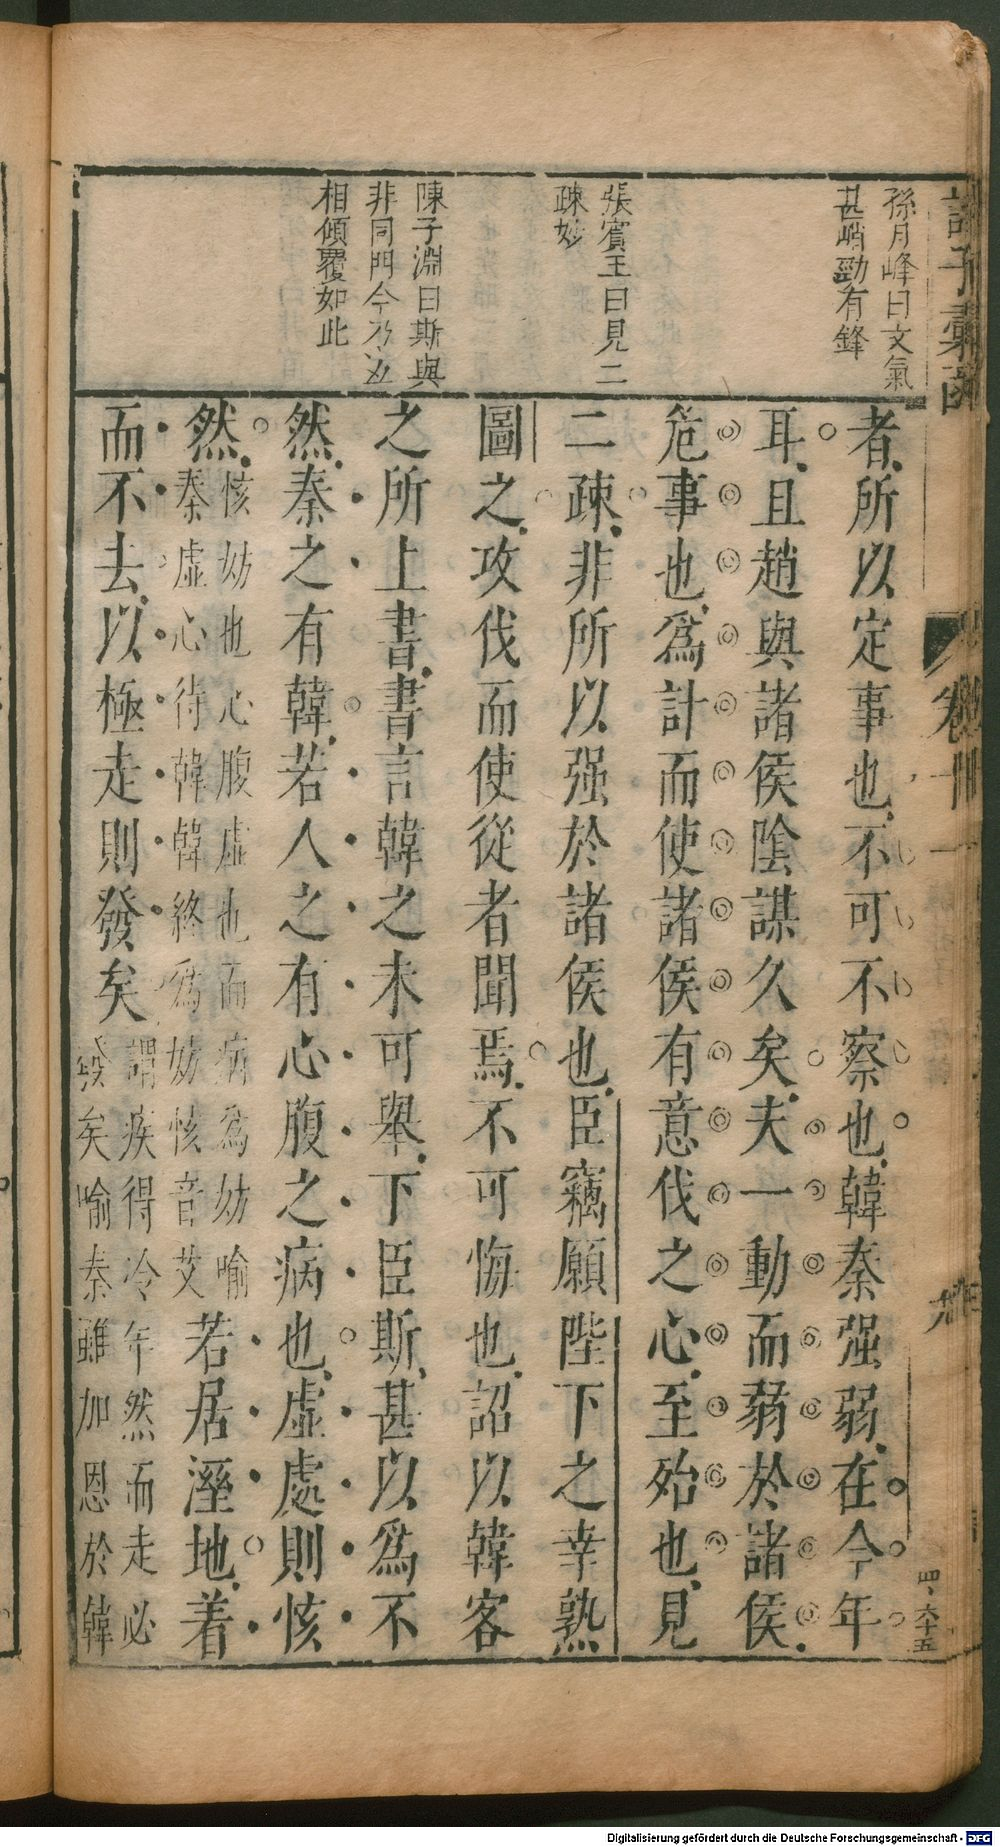 諸子彙函
卷十一
四六十五
孫月峰曰文氣
甚峭勁有鋒
張賓王曰見二
疎妙
陳子淵曰斯與
非同門今乃汲
相傾覆如此
者所以定事也不可不察也韓秦强弱在今年
耳且趙與諸侯陰謀久矣夫一動而弱於諸侯
危事也爲計而使諸侯有意伐之心至殆也見
二疎非所以强於諸侯也臣竊願陛下之幸熟
圖之攻伐而使從者聞焉不可悔也詔以韓客
之所上書書言韓之未可舉下臣斯甚以爲不
然秦之有韓若人之有心腹之病也虛處則㤥
然㤥妨也心腹虛也而病爲妨喻
秦虛心待韓韓終爲妨㤥音艾若居溼地着
而不去以極走則發矣謂疾得冷年然而走必
發矣喻秦雖加恩於韓
Digitalisierung gefördert durch die Deutsche Forschungsgemeinschaft - DFG